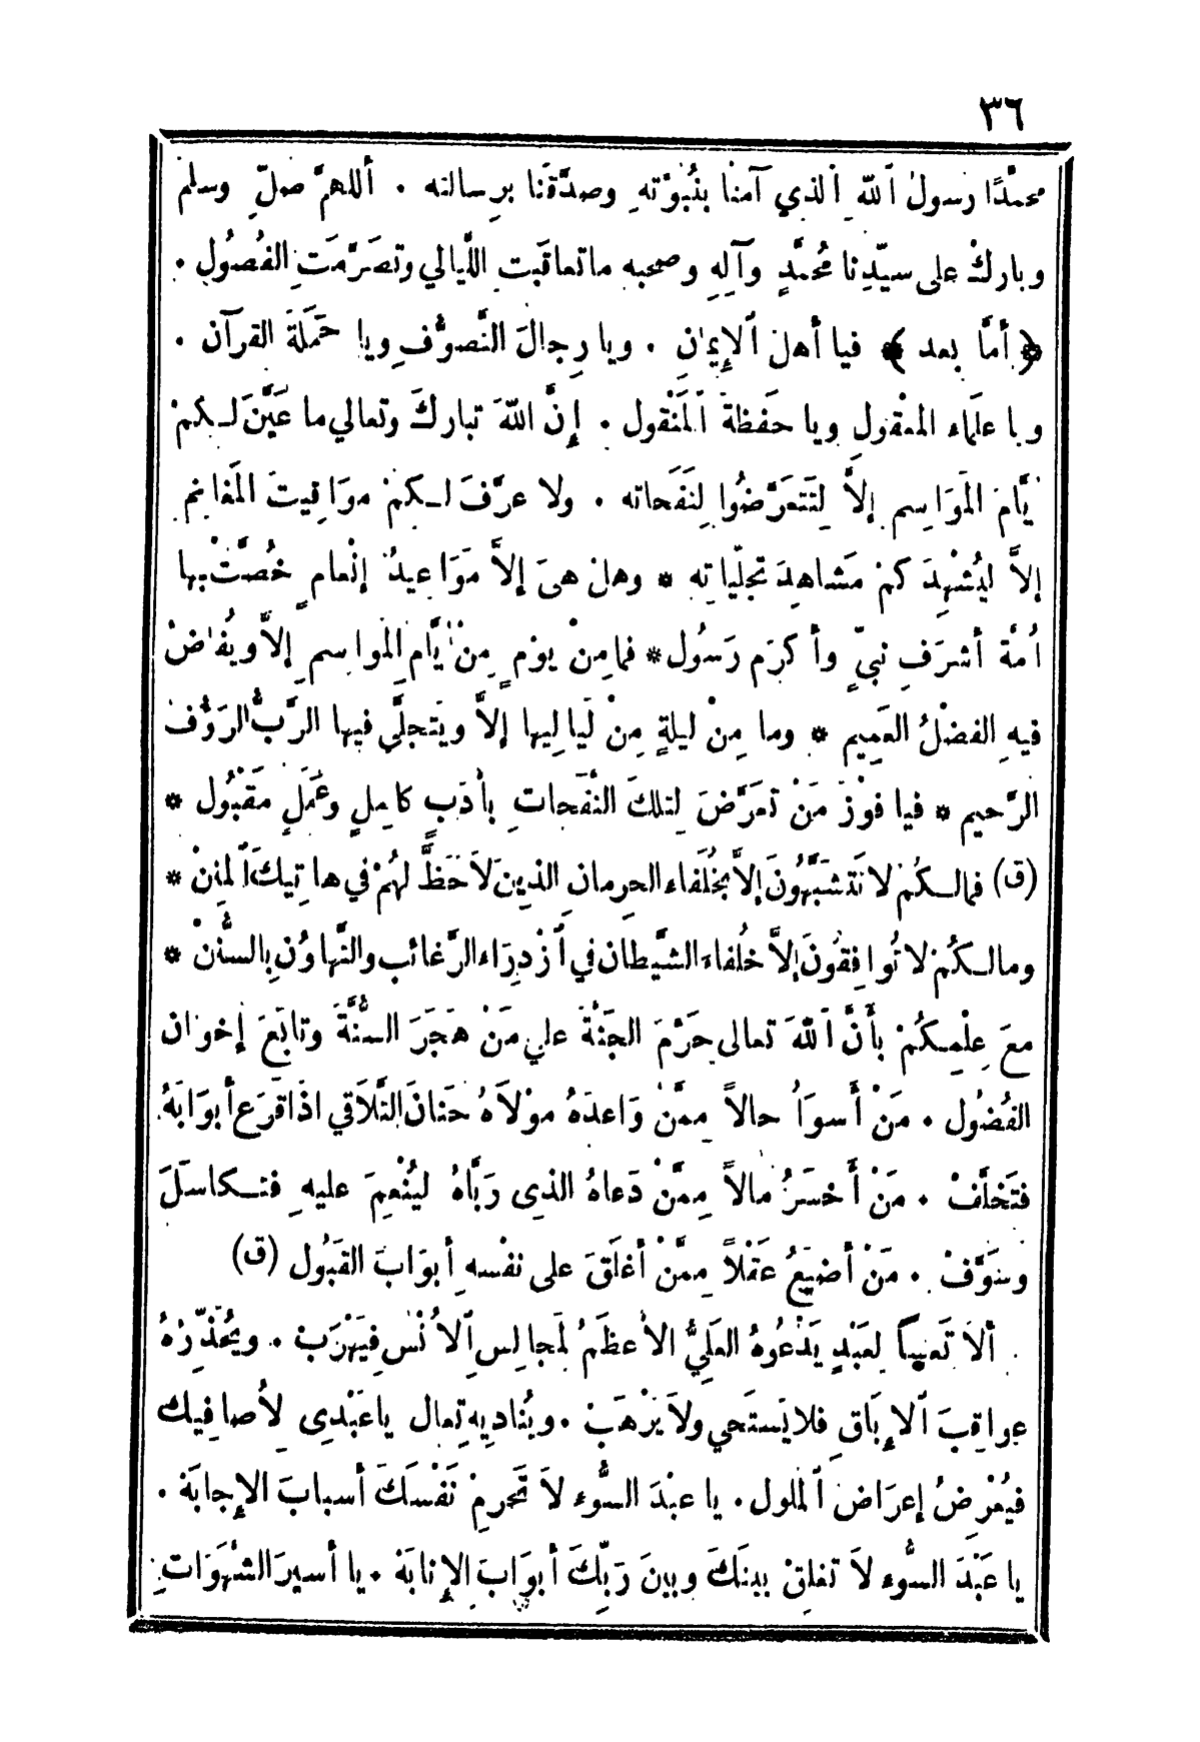 ٣٦
محمَّدًا رسولُ ٱللّهِ ٱلذي آمنَّا بنُبُوَّتهِ وصدَّقنَا برِسالته . أللهمَّ صلِّ وسلمْ
وباركْ على سيّدِنا مُحمَّدٍ وآلِهِ وصحبه ماتعاقَبت اللَّيالي وتصَرَّمَتِ الفُصُولِ .
﴿ أمَّا بعد ﴾ فيا أهلَ ٱلإِيمٰانِ . ويا رِجالَ التَّصوُّفِ ويا حَمَلَةَ القرآن .
ويا علَماء المعْقولِ ويا حَفَظةَ ٱلمَنْقول . إِنَّ اللّهَ تباركَ وتعالي ما عَيَّنَ لـكمْ
أيَّامَ المَوَاسِم إلاَّ لِتَتعَرَّضُوا لِنَفَحاته . ولا عرَّفَ لـكمْ موَاقيتَ المَغانِم
إلاَّ ليُشْهِدَ كمْ مَشاهِدَ تجلّياته * وهلْ هىَ إلاَّ مَوَاعيدُ إنْعامٍ خُصَّتْ بها
أمَّة أشرَفِ نبيّ وأكرَم رَسُول * فمامِنْ يوْمٍ مِنْ أيَّامِ المواسِم إلاَّ ويُفاضُ
فيهِ الفضْلُ العَمِيم * وما مِنْ ليلةٍ مِنْ لَيالِيها إلاَّ ويَتجلَّى فيها الرَّبُّ الرَؤُف
الرَّحيم * فيا فوْزَ مَنْ تعَرَّضَ لتلكَ النَّفَحاتِ بأدَبٍ كامِلٍ وعَمَلٍ مَقْبُول *
(ق) فمالـكُمْ لا تَتشبَّهُونَ إلاَّ بخُلَفاء الحِرمانِ الذِينَ لاَ حَظَّ لهُمْ في هاتِيكَ ٱلمِننْ *
ومالـكُمْ لا تُوافِقُونَ إلاَّ خُلفاءَ الشَّيطان في ٱزْدِرَاء الرَّغائب والتَّهاوُنِ بِالسُّننْ *
معَ عِلْمِـكُمْ بأَنَّ ٱللّهَ تعالى حَرَّمَ الجَنَّةَ علي مَنْ هَجَرَ السُّنَّةَ وتابَعَ إخوَانَ
الفُضُول . مَنْ أَسوَأُ حالاً مِمَّنْ وَاعدَهُ موْلاَهُ حَنانَ التَّلاَقي اذَا قرَع أبوَابَهُ
فتَخلَّفْ . مَنْ أَخسَرُ مالاً مِمَّنْ دَعاهُ الذى رَبَّاهُ ليُنْعِمَ عليهِ فتـكاسَلَ
وسَوَّفْ . مَنْ أضيَعُ عَقْلاً مِمَّنْ أغلَقَ على نفْسه أبوَابَ القَبُول (ق)
ألاَ تَعَجباً لِعَبْدٍ يَدْعُوهُ العَلِيُّ الأعظَمُ لمَجالِسِ ٱلاُنْسِ فيَهْرَبْ . ويُحَذِّرُهُ
عواقِبَ ٱلإِبَاقِ فلا يَستَحي ولاَ يَرْهَبْ . ويُنادِيهِ تعال ياعَبْدى لأصافِيك
فيُعْرِضُ إعرَاضَ ٱلملول . يا عبْدَ السُّوءِ لاَ تَحرِمْ نَفْسَكَ أسبابَ الإِجابَة .
يا عَبْدَ السُّوء لاَ تغلِقْ بينَكَ وبينَ رَبِّكَ أبوَابَ الإِنابَة . يا أسيرَ الشهَوَات